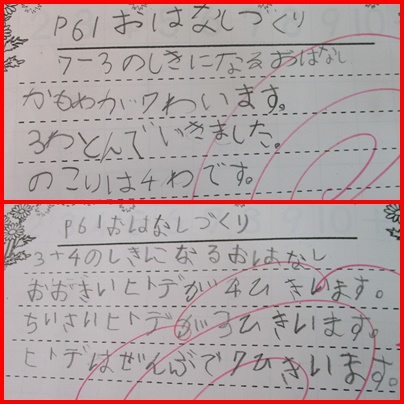 P61 おはなしづくり
7-3のしきになるおはなし
かもがが7わいます。
3わとんでいきました。
のこりは4わです。
P61おはなしづくり
3+4のしきになるおはなし
おおきいヒトデが4ひきいます。
ちいさいヒトデが3ひきいます。
ヒトデはぜんぶで7ひきいます。